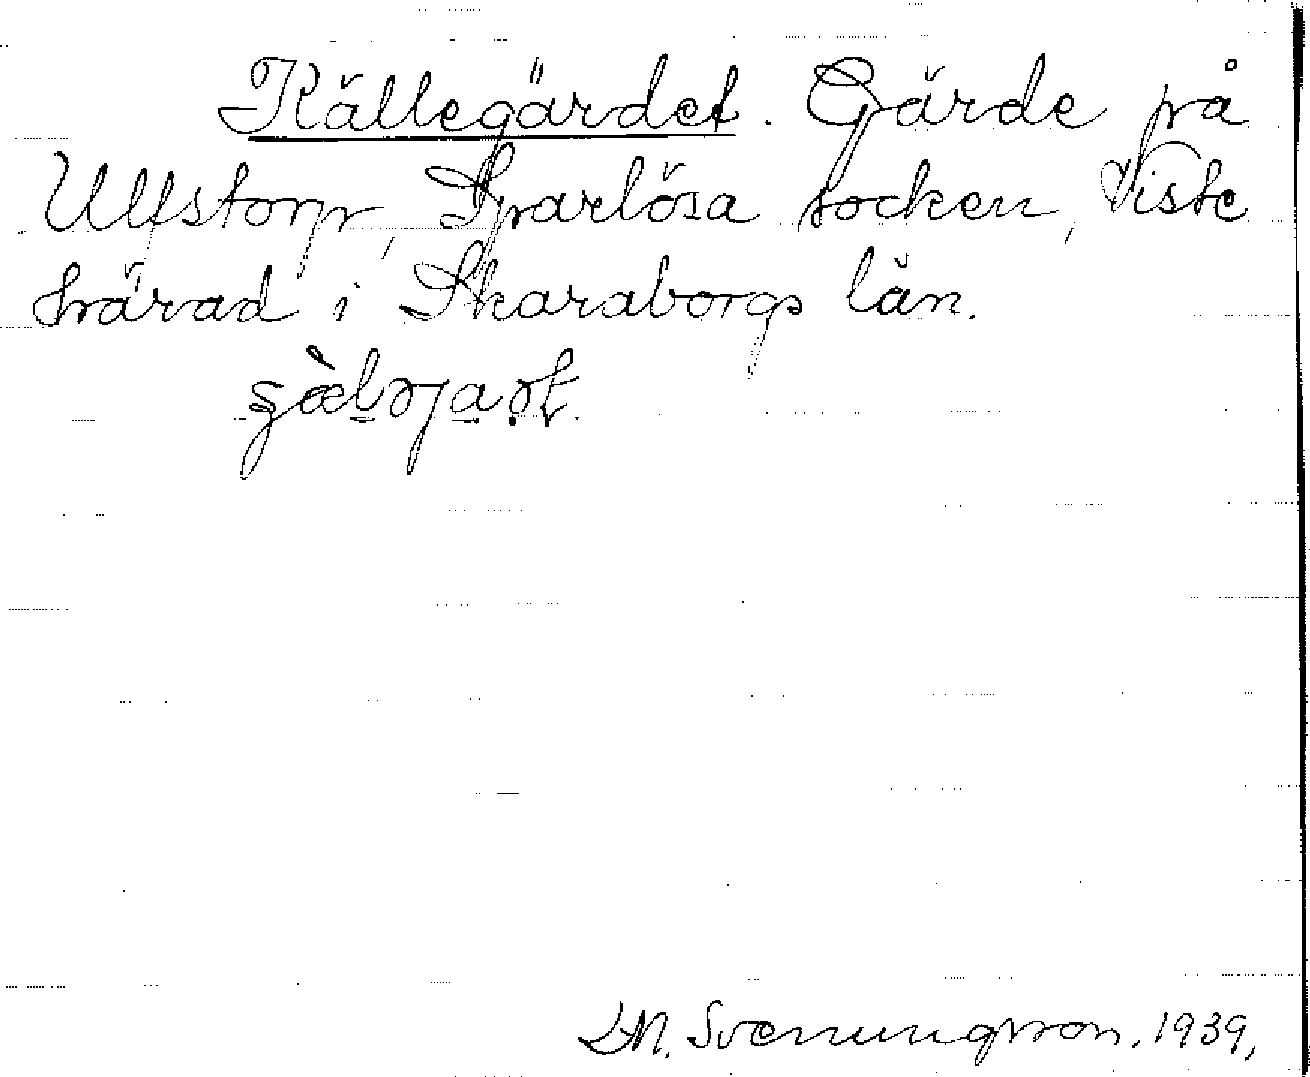 Källegärdet. Gärde på
Ulfstorp, Sparlösa socken, Viste
härad i Skaraborgs län.
Svenungsson. 1939,